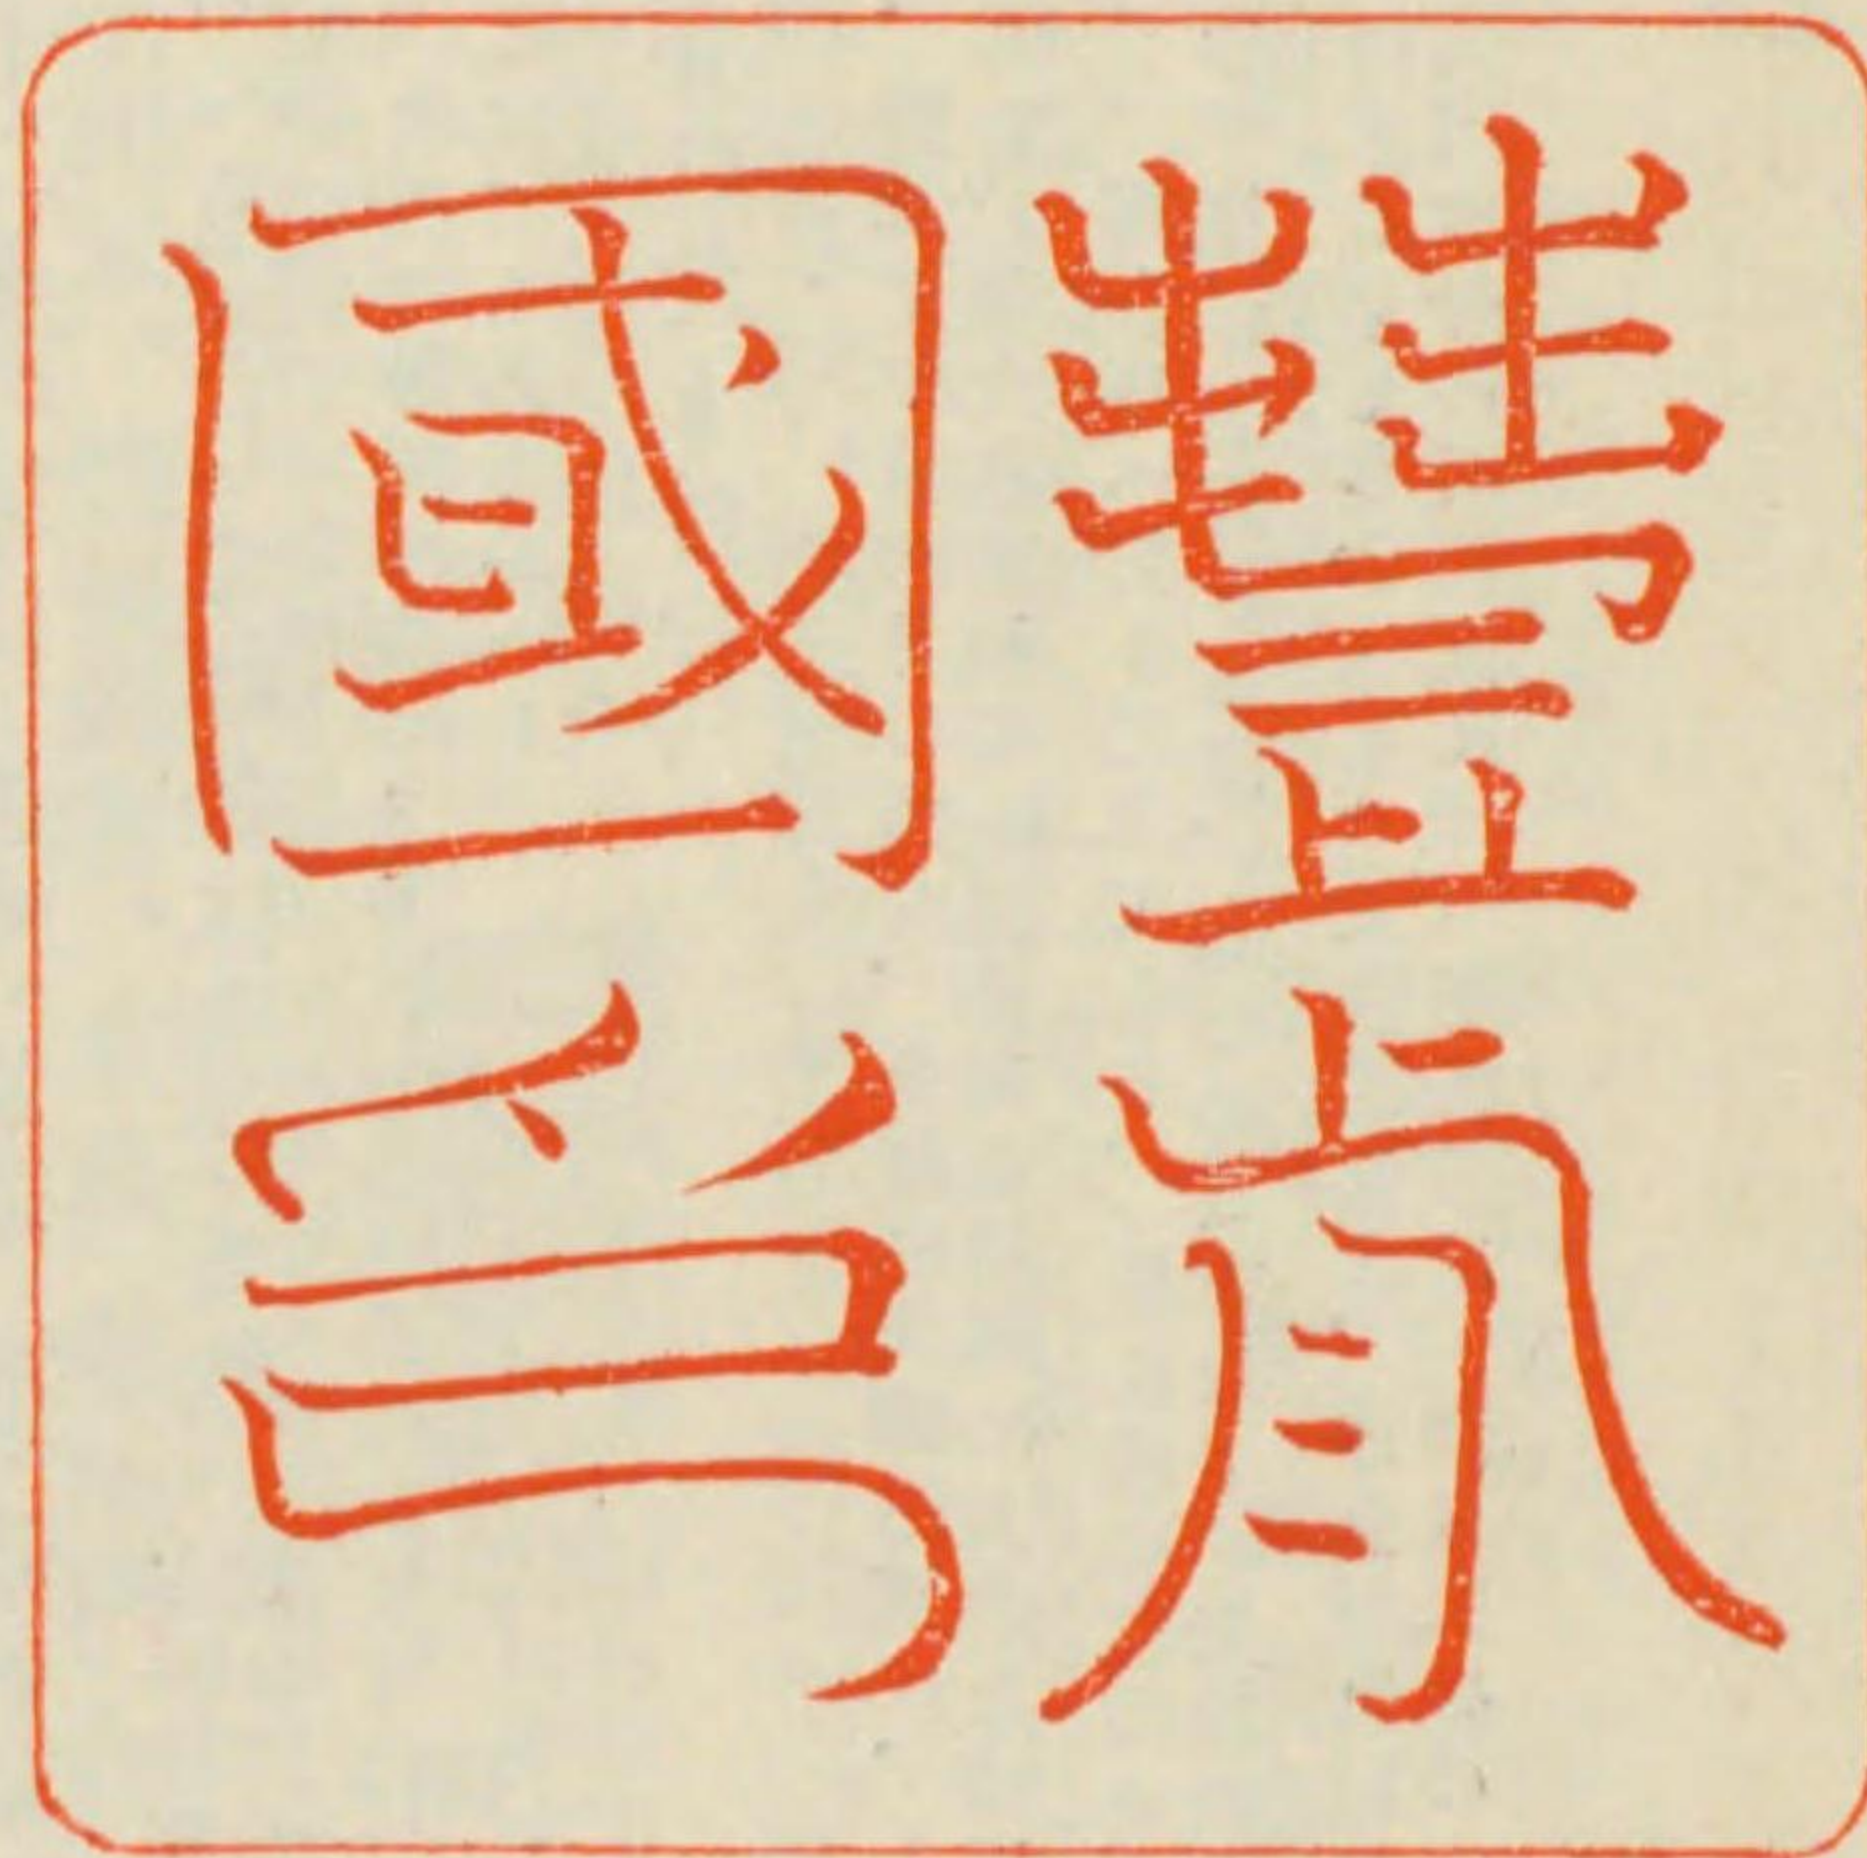 豐前
國印